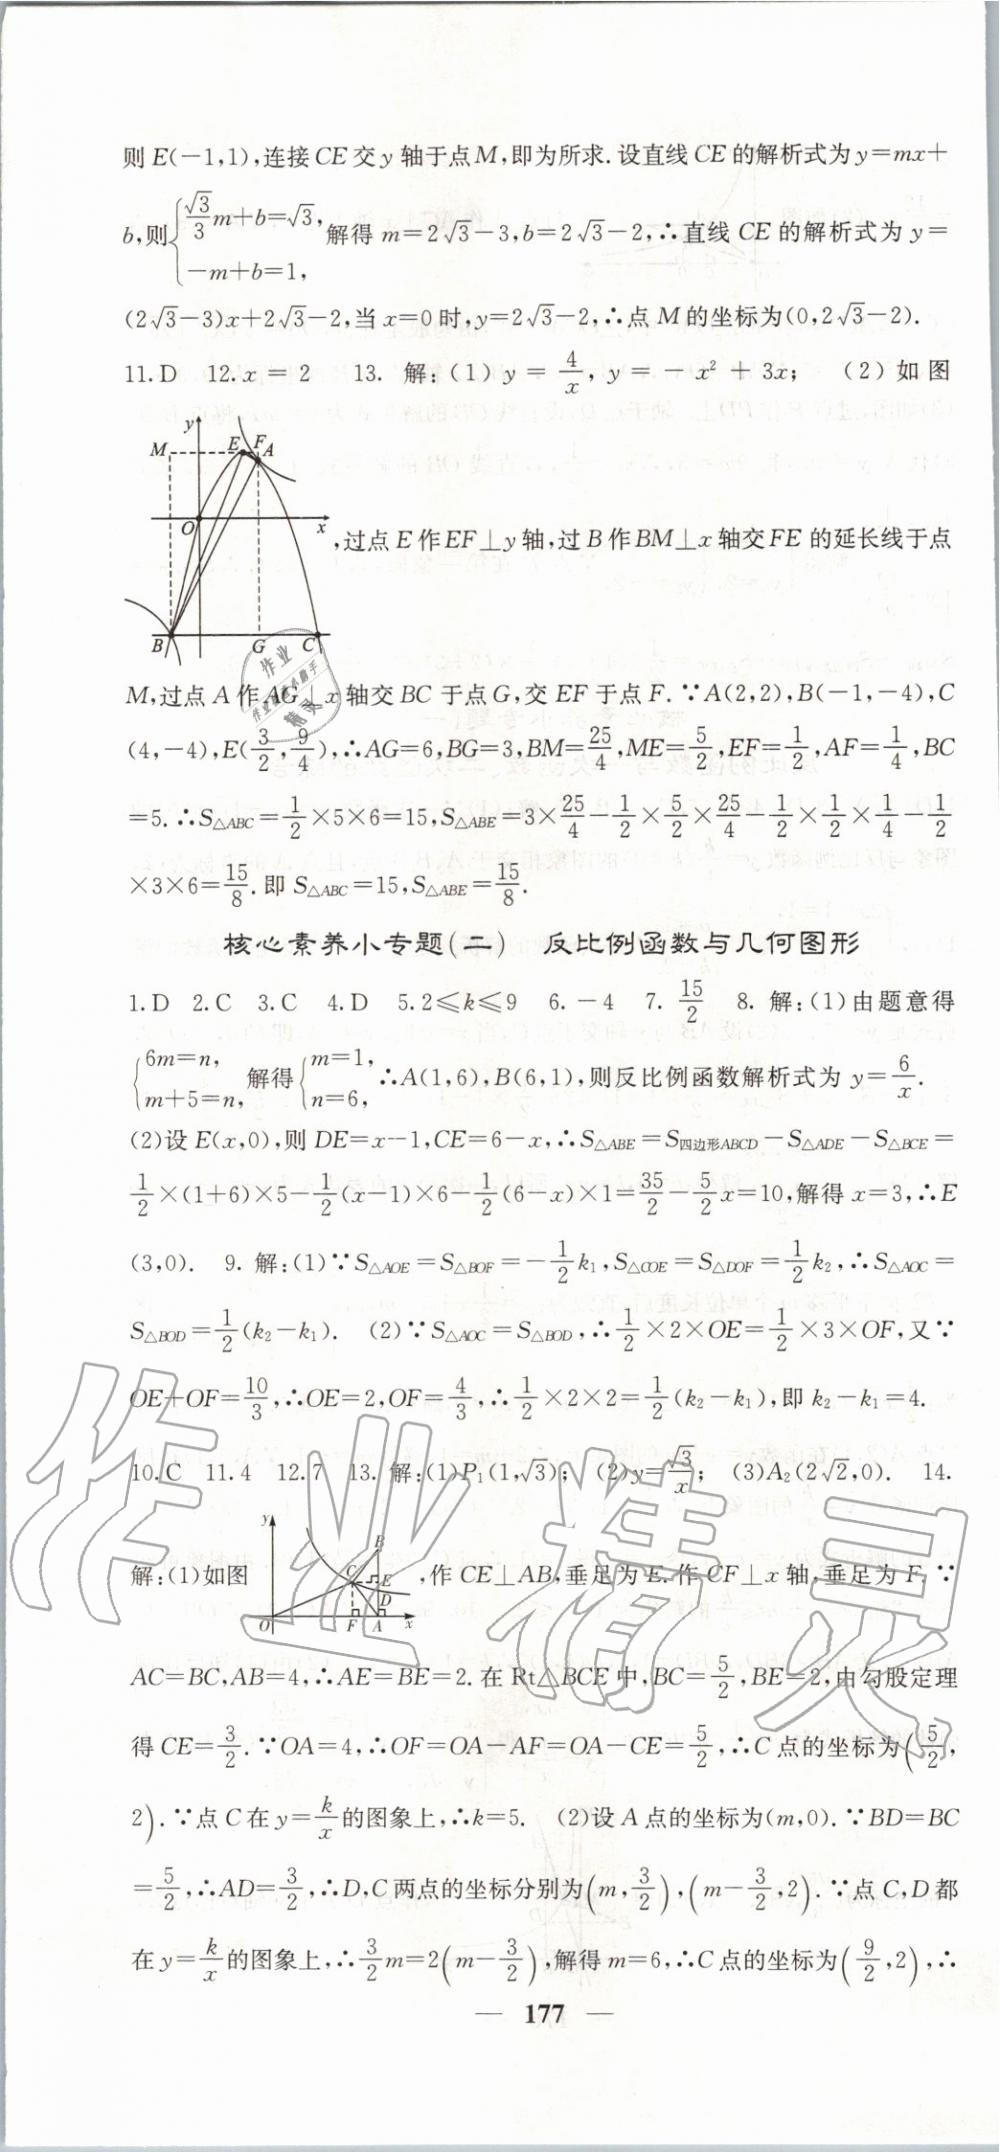 则 E(-1,1),连接 CE 交 y 轴于点 M,即为所求. 设直线 CE 的解析式为 y=mx+
b,则{√3/3 m+b=√3, -m+b=1, 解得 m=2√3-3,b=2√3-2,∴直线 CE 的解析式为 y=
(2√3-3)x+2√3-2,当 x=0 时,y=2√3-2,∴点 M 的坐标为(0,2√3-2).
11.D 12.x=2 13. 解:(1) y=4/x, y=-x²+3x; (2) 如图
y
M E F A
O x
,过点 E 作 EF⊥y 轴,过 B 作 BM⊥x 轴交 FE 的延长线于点
B G C
M,过点 A 作 AG⊥x 轴交 BC 于点 G,交 EF 于点 F.∵A(2,2),B(-1,-4),C
(4,-4),E(3/2,9/4),∴AG=6,BG=3,BM=25/4,ME=5/2,EF=1/2,AF=1/4,BC
=5.∴S△ABC=1/2×5×6=15,S△ABE=3×25/4-1/2×5/2×25/4-1/2×1/2×1/4-1/2
×3×6=15/8.即 S△ABC=15,S△ABE=15/8.
核心素养小专题(二) 反比例函数与几何图形
1.D 2.C 3.C 4.D 5.2≤k≤9 6.-4 7.15/2 8. 解:(1)由题意得
{6m=n, m+5=n, 解得{m=1, n=6, ∴A(1,6),B(6,1),则反比例函数解析式为 y=6/x.
(2)设 E(x,0),则 DE=x-1,CE=6-x,∴S△ABE=S四边形ABCD-S△ADE-S△BCE=
1/2×(1+6)×5-1/2(x-1)×6-1/2(6-x)×1=35/2-5/2x=10,解得 x=3,∴E
(3,0). 9. 解:(1)∵S△AOE=S△BOF=-1/2k₁,S△COE=S△DOF=1/2k₂,∴S△AOC=
S△BOD=1/2(k₂-k₁). (2)∵S△AOC=S△BOD,∴1/2×2×OE=1/2×3×OF,又∵
OE+OF=10/3,∴OE=2,OF=4/3,∴1/2×2×2=1/2(k₂-k₁),即 k₂-k₁=4.
10.C 11.4 12.7 13. 解:(1)P₁(1,√3); (2)y=√3/x; (3)A₂(2√2,0). 14.
y B
解:(1)如图 C E D ,作 CE⊥AB,垂足为 E.作 CF⊥x 轴,垂足为 F.∵
O F A x
AC=BC,AB=4,∴AE=BE=2.在 Rt△BCE 中,BC=5/2,BE=2,由勾股定理
得 CE=3/2.∵OA=4,∴OF=OA-AF=OA-CE=5/2,∴C 点的坐标为(5/2,
2).∵点 C 在 y=k/x 的图象上,∴k=5. (2)设 A 点的坐标为(m,0).∵BD=BC
=5/2,∴AD=3/2,∴D,C 两点的坐标分别为(m,3/2),(m-3/2,2).∵点 C,D 都
在 y=k/x 的图象上,∴3/2m=2(m-3/2),解得 m=6,∴C 点的坐标为(9/2,2),∴
— 177 —
作业精灵